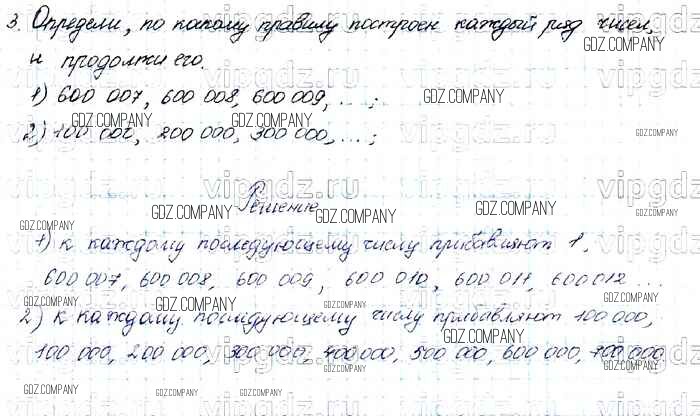 3. Определи, по какому правилу построен каждый ряд чисел,
и продолжи его.
1) 600 007, 600 008, 600 009, ... ;
2) 100 000, 200 000, 300 000, ... ;
Решение
1) к каждому последующему числу прибавляют 1.
600 007, 600 008, 600 009, 600 010, 600 011, 600 012 ...
2) к каждому последующему числу прибавляют 100 000,
100 000, 200 000, 300 000, 400 000, 500 000, 600 000, 700 000
GDZ.COMPANY
vipgdz.ru